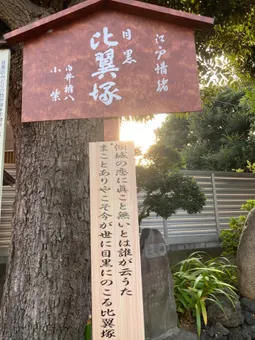 江戸情緒
目黒
比翼塚
白井権八
小紫
傾城の恋に真こと無いとは誰が云うた
まことありやこそ今が世に目黒にのこる比翼塚